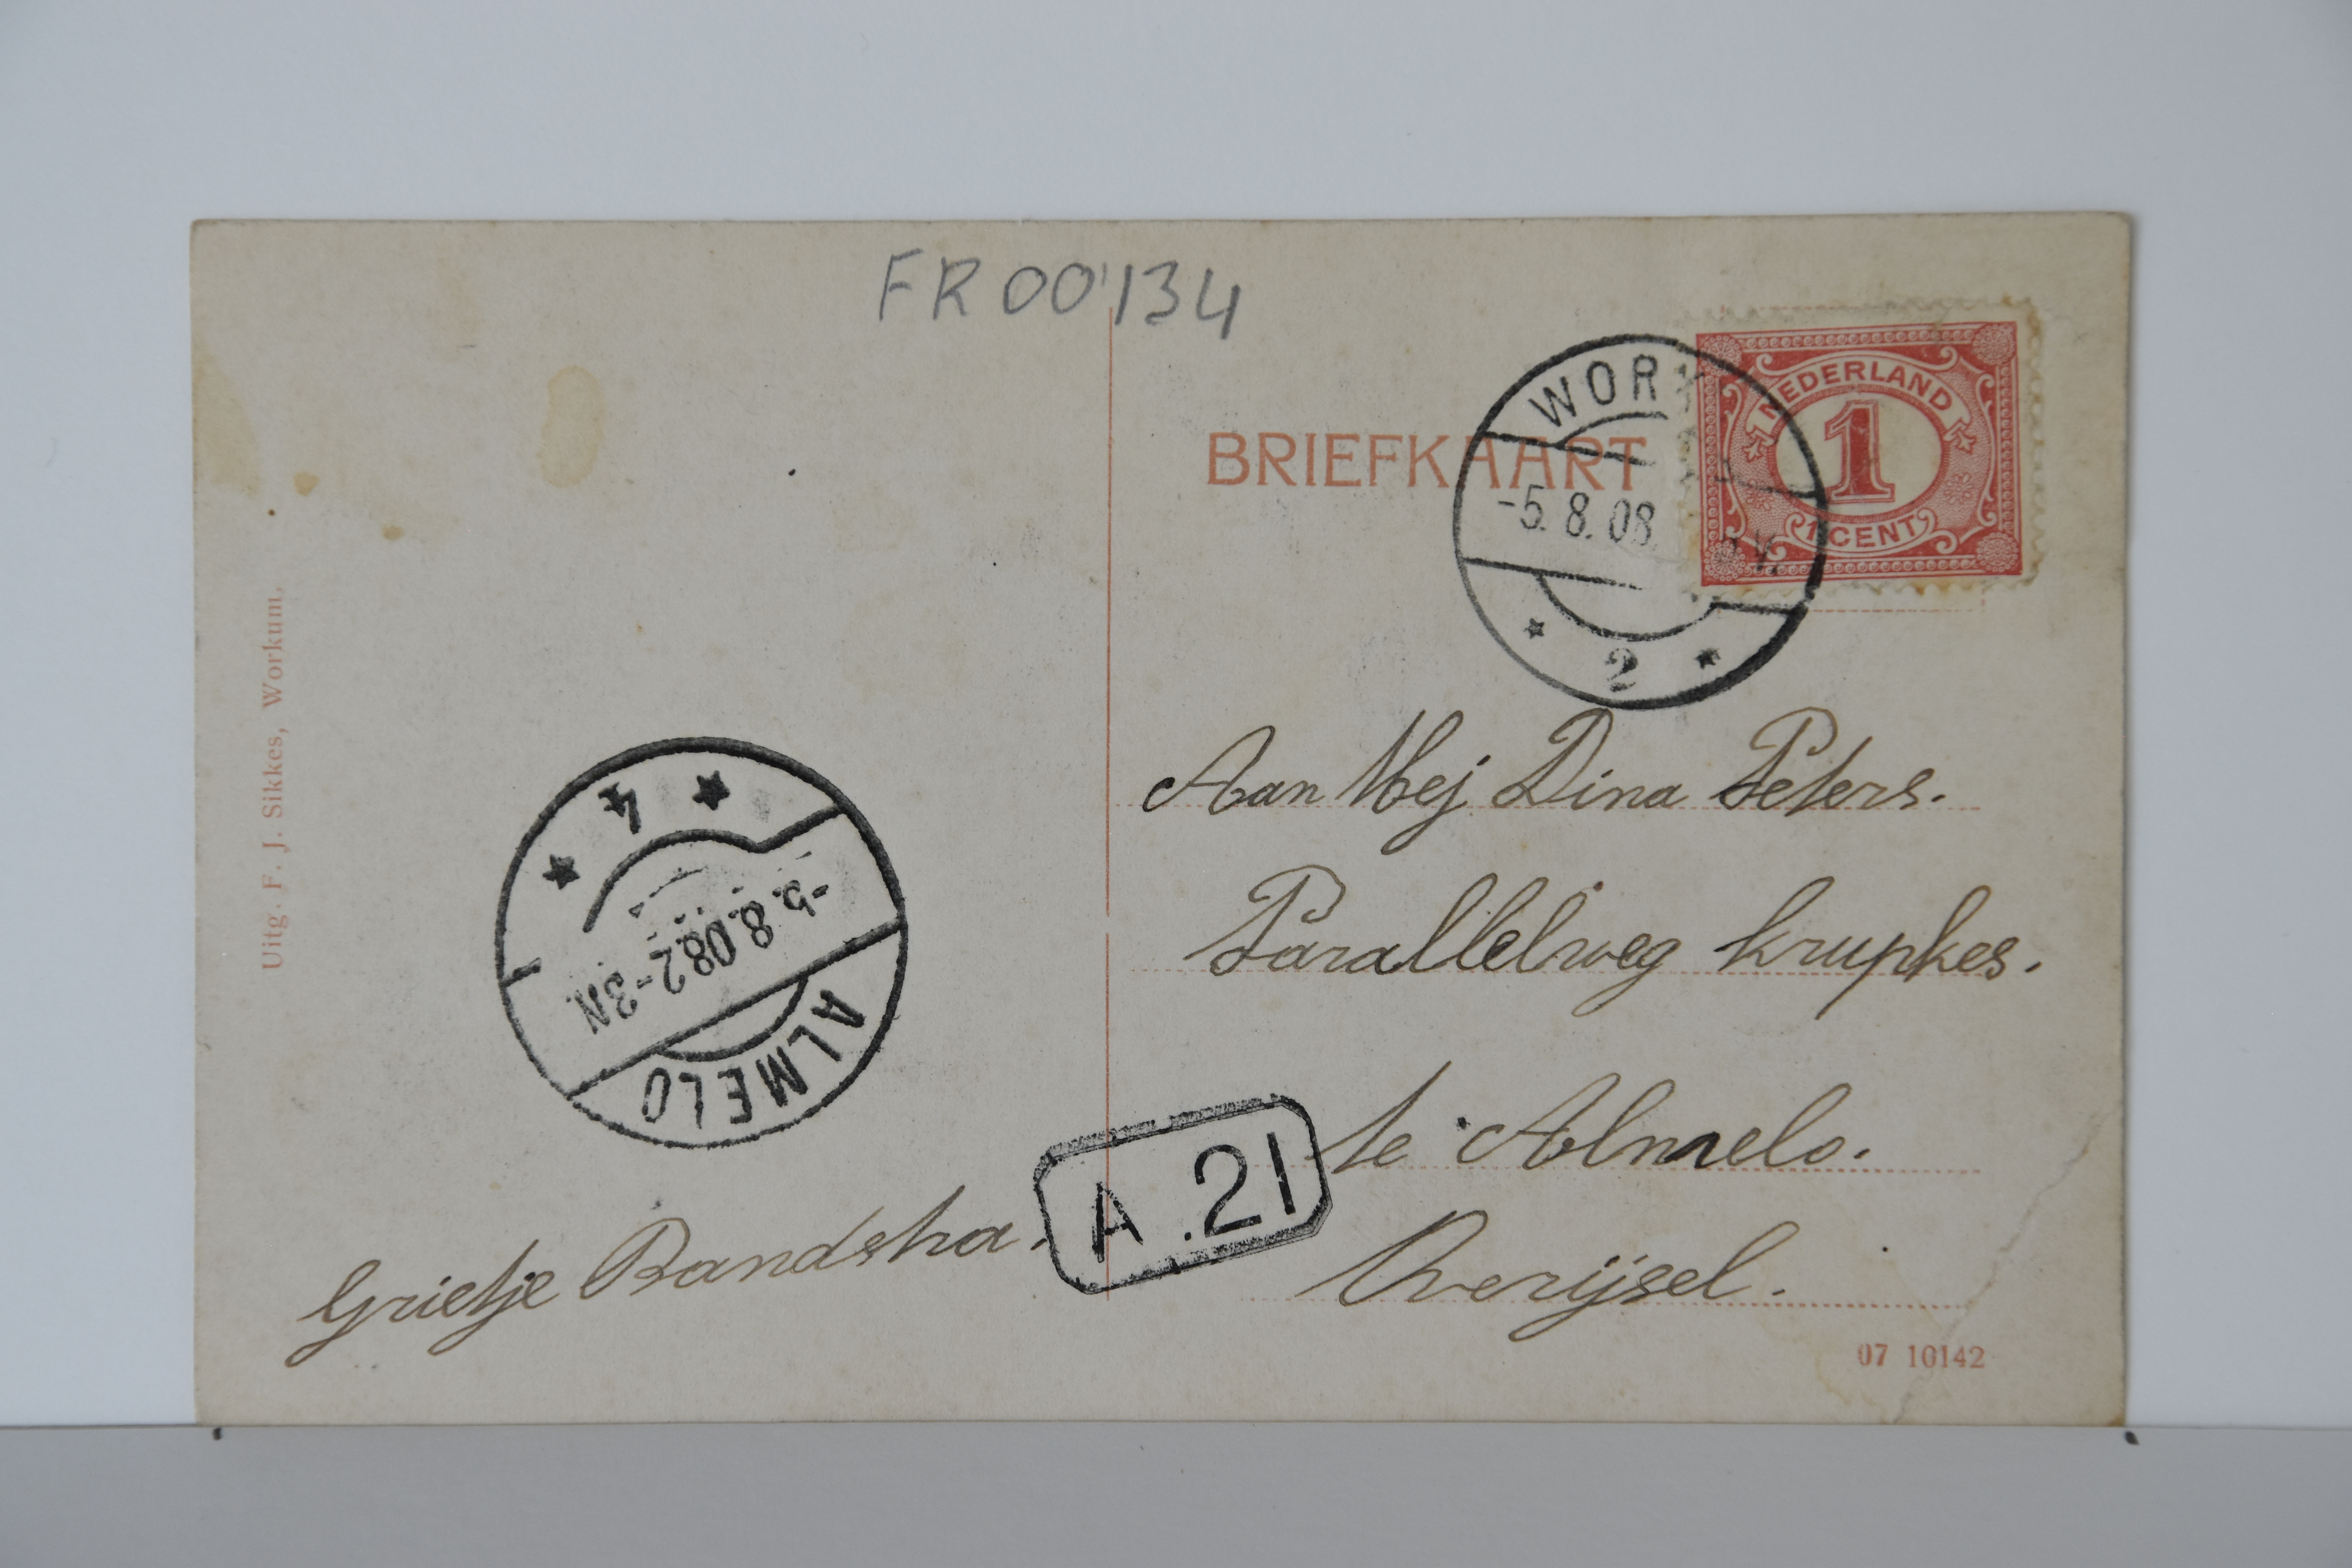 FR00134
BRIEFKAART
WORK
-5. 8. 08. V.
2
NEDERLAND
1
1 CENT
Uitg. F. J. Sikkes, Workum.
4
-5.8.08 2-3N
ALMELO
Aan Mej Dina Peters.
Parallelweg krupkes.
te Almelo.
Overijsel.
A.21
Grietje Bandstra.
07 10142